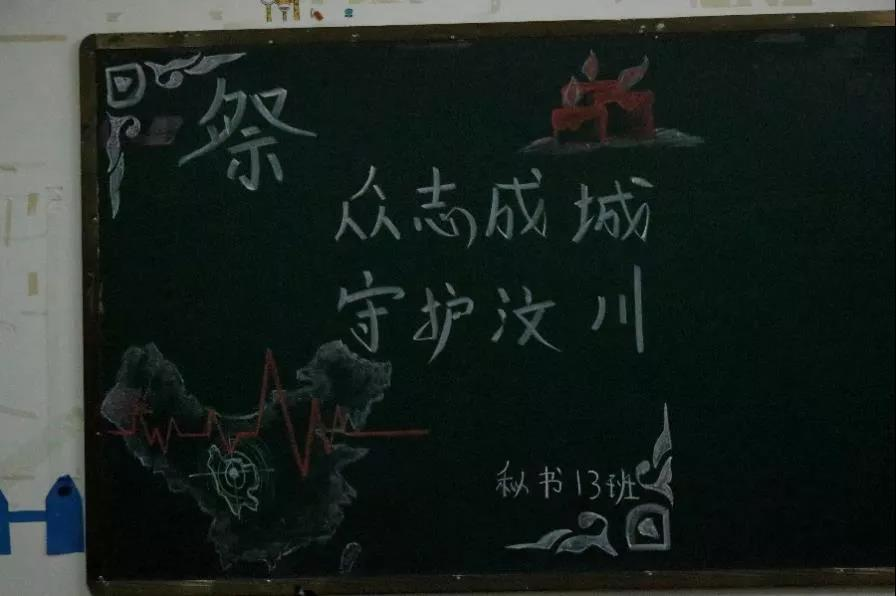 祭
众志成城
守护汶川
秘书13班